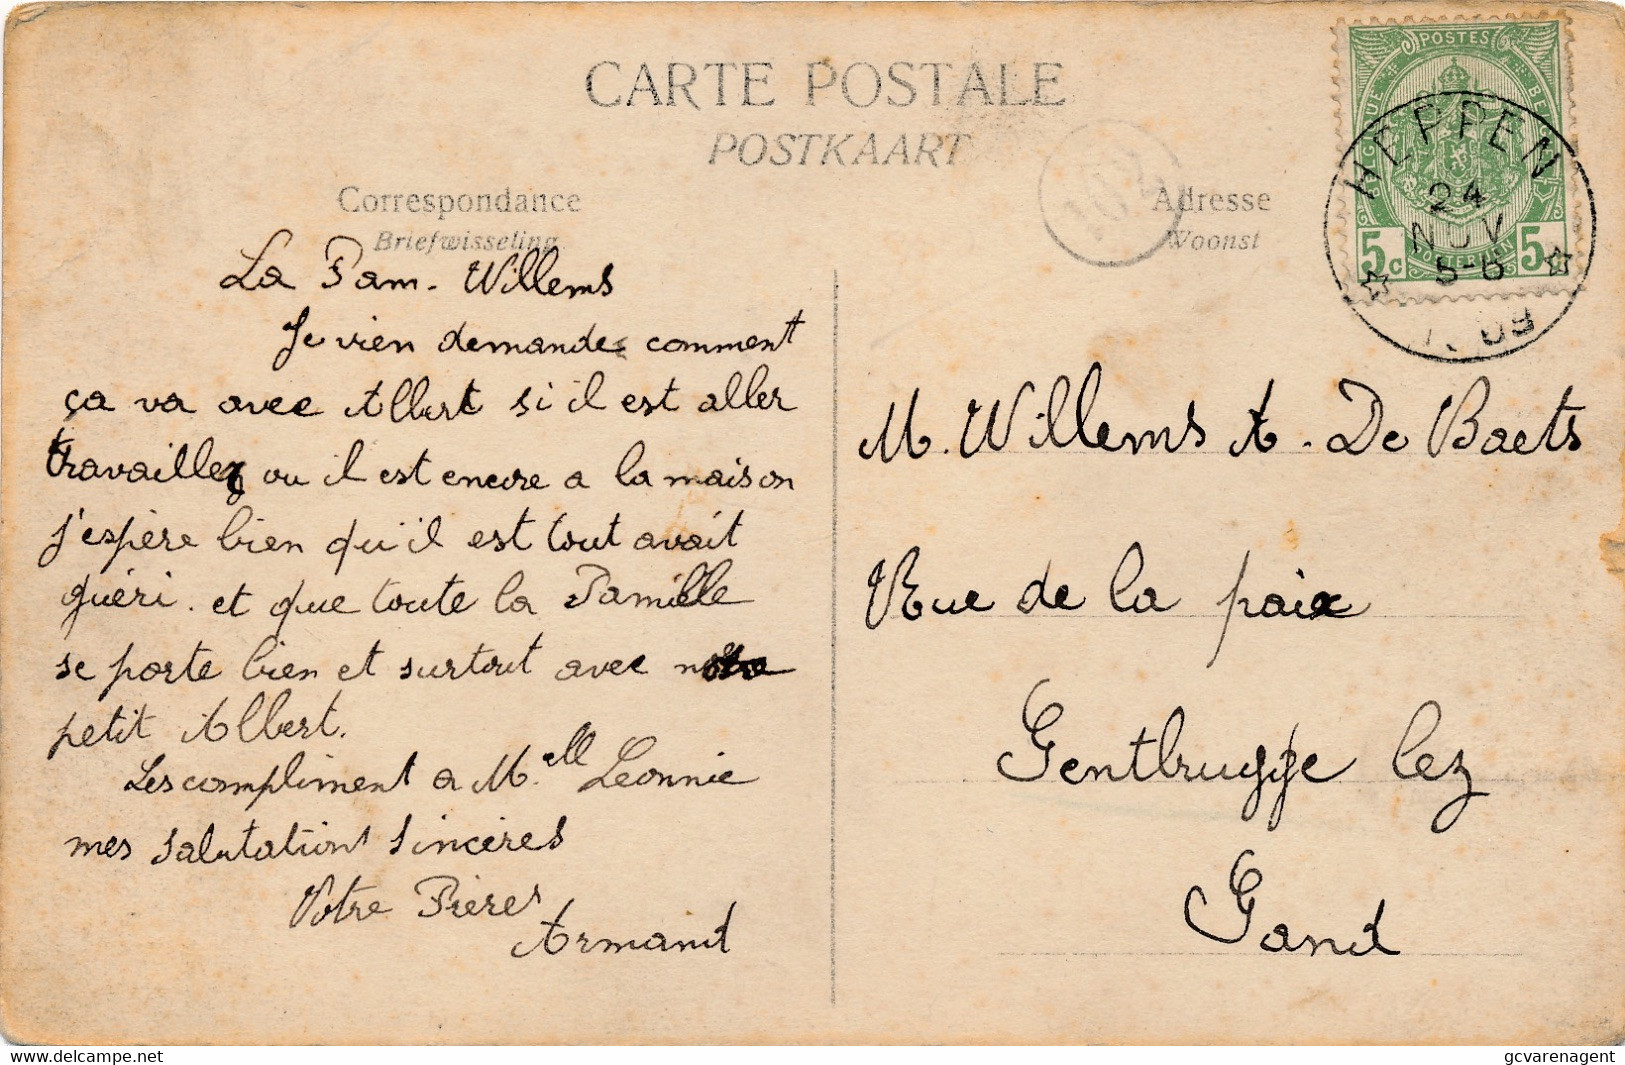 CARTE POSTALE
POSTKAART
Correspondance
Briefwisseling
Adresse
Woonst
POSTES
5c 5c
HEPPEN
24
NOV
5-6
08
La Fam. Willems
Je vien demande comment
ça va avec Albert si il est aller
travailler ou il est encore a la maison
j'espère bien qu'il est tout avait
guéri. et que toute la Famille
se porte bien et surtout avec notre
petit Albert.
Les compliment a M.ell Leonnie
mes salutations sincères
Votre Frères
Armand
M. Willems A. De Baets
Rue de la paix
Gentbrugge lez
Gand
Website : delcampe.net
gcvarenagent